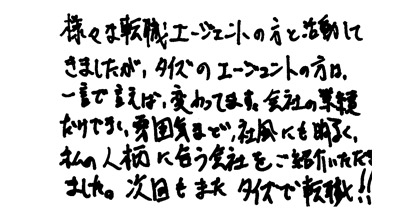 様々な転職エージェントの方と活動して
きましたが、タイズのエージェントの方は、
一言で言えば、変わってます。会社の業績
だけでなく、雰囲気まで、社風にも明るく、
私の人柄に合う会社をご紹介いただき
ました。次回もまたタイズで転職!!